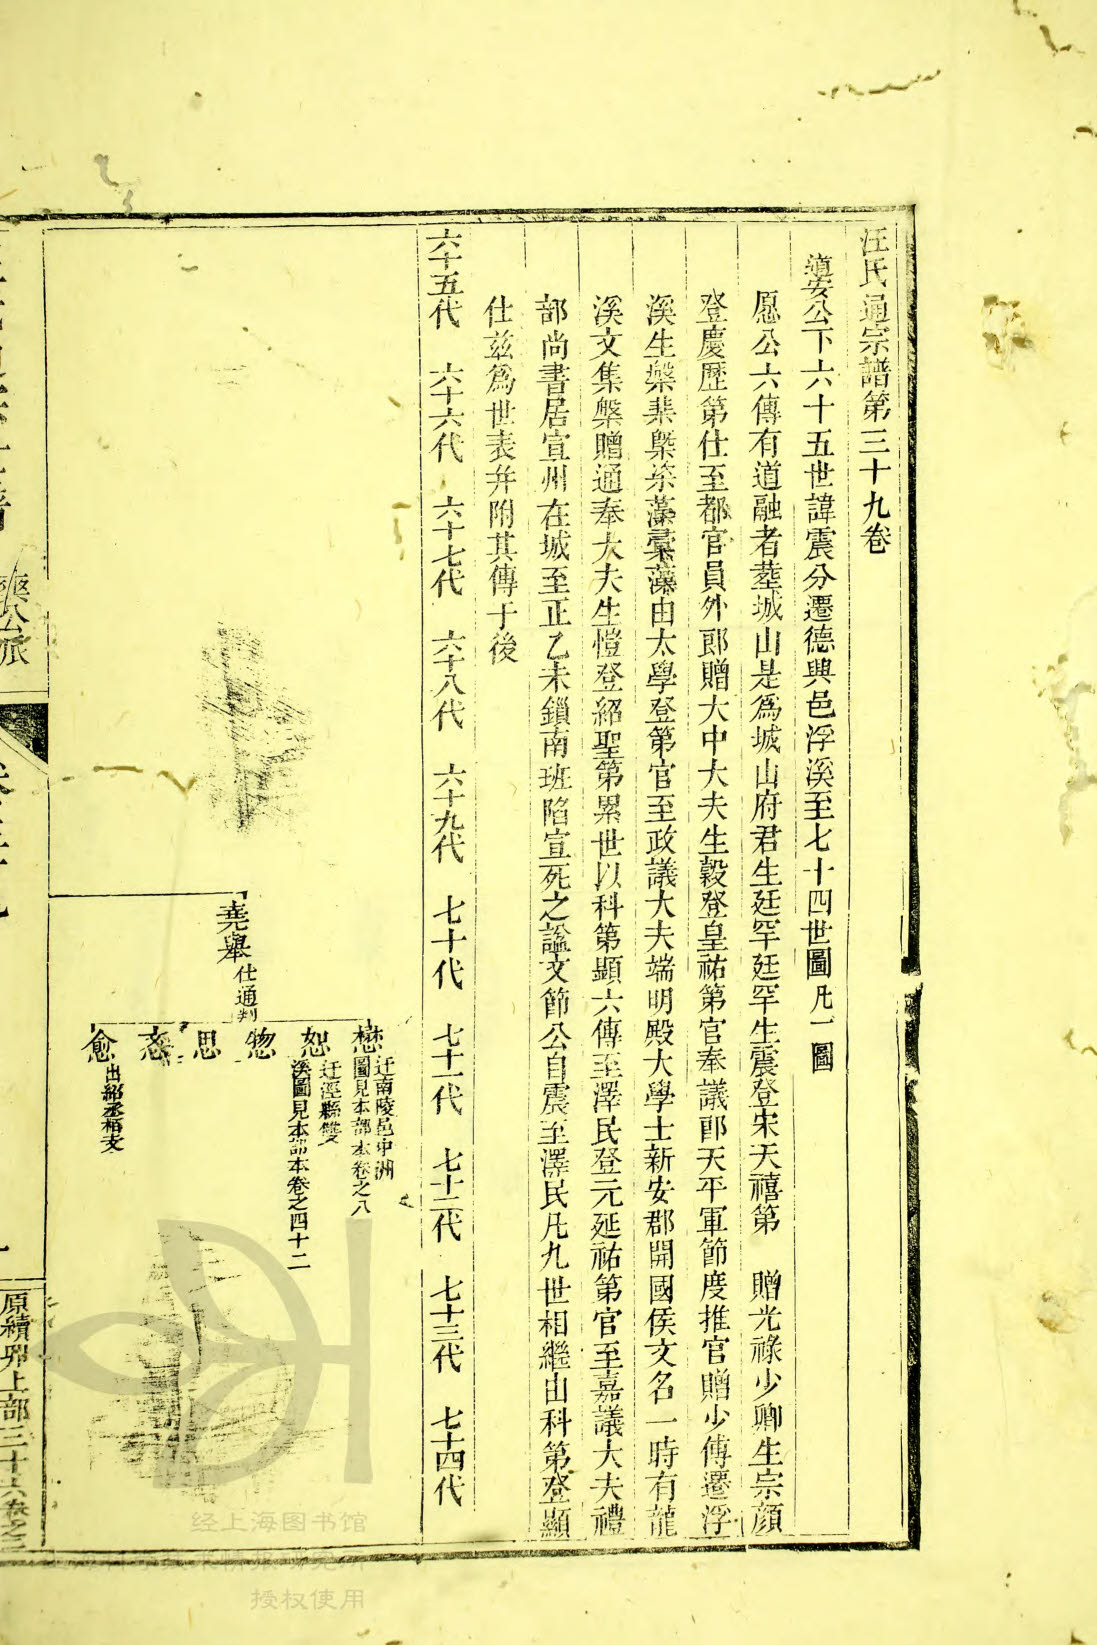 汪氏通宗譜第三十九卷
道安公下六十五世諱震分遷德興邑浮溪至七十四世圖凡一圖
愿公六傳有道融者塟城山是爲城山府君生廷罕廷罕生震登宋天禧第 贈光祿少卿生宗顏
登慶歷第仕至都官員外郎贈大中大夫生穀登皇祐第官奉議郎天平軍節度推官贈少傅遷浮
溪生槃棐槩藻藻由太學登第官至政議大夫端明殿大學士新安郡開國侯文名一時有龍
溪文集槃贈通奉大夫生愷登紹聖第累世以科第顯六傳至澤民登元延祐第官至嘉議大夫禮
部尚書居宣州在城至正乙未鎖南班陷宣死之諡文節公自震至澤民凡九世相繼由科第登顯
仕兹爲世表并附其傳于後
六十五代 六十六代 六十七代 六十八代 六十九代 七十代 七十一代 七十二代 七十三代 七十四代
堯舉 仕通判
懋 迁南陵邑中洲
圖見本部本卷之八
恕 迁涇縣雙
溪圖見本部本卷之四十二
惣
思
忞
愈 出紹丞相表
公派
原續卯上部三十六卷之三
经上海图书馆
授权使用